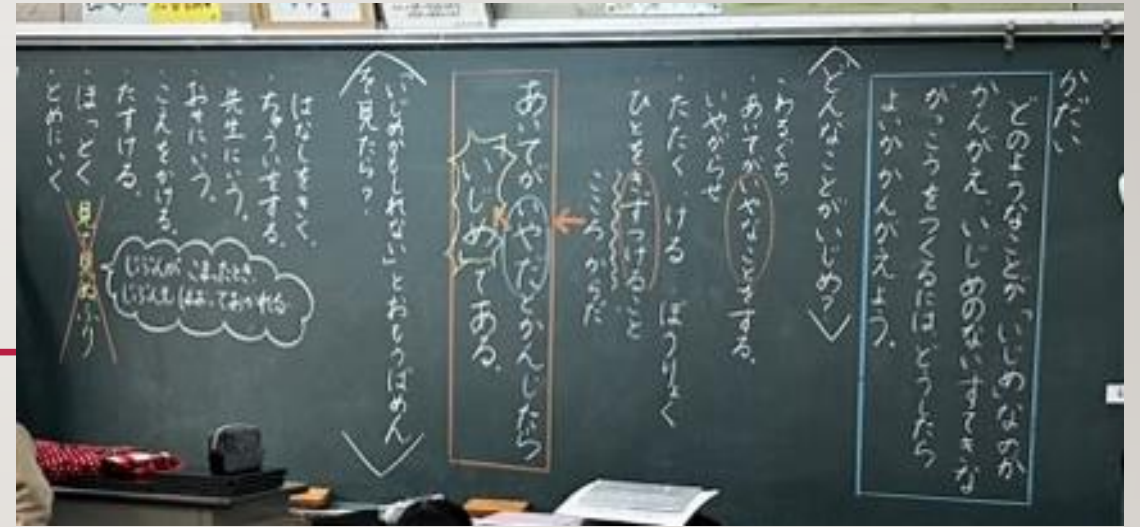 かだい
どのようなことが「いじめ」なのか
かんがえ、いじめのないすてきな
がっこうをつくるには、どうしたら
よいかかんがえよう。
どんなことがいじめ？
・わるぐち
・あいてがいやなことをする。
いやがらせ
・たたく ける ぼうりょく
・ひとをきずつけること
こころ からだ
あいてがいやだとかんじたら
いじめである。
「いじめかもしれない」とおもうばめん
を見たら？
・はなしをきく。
・ちゅういをする。
・先生にいう。
・おやにいう。
・こえをかける。
・たすける。
・ほっとく
・とめにいく
見て見ぬふり
じぶんが こまったとき、
じぶんも ほおっておかれる